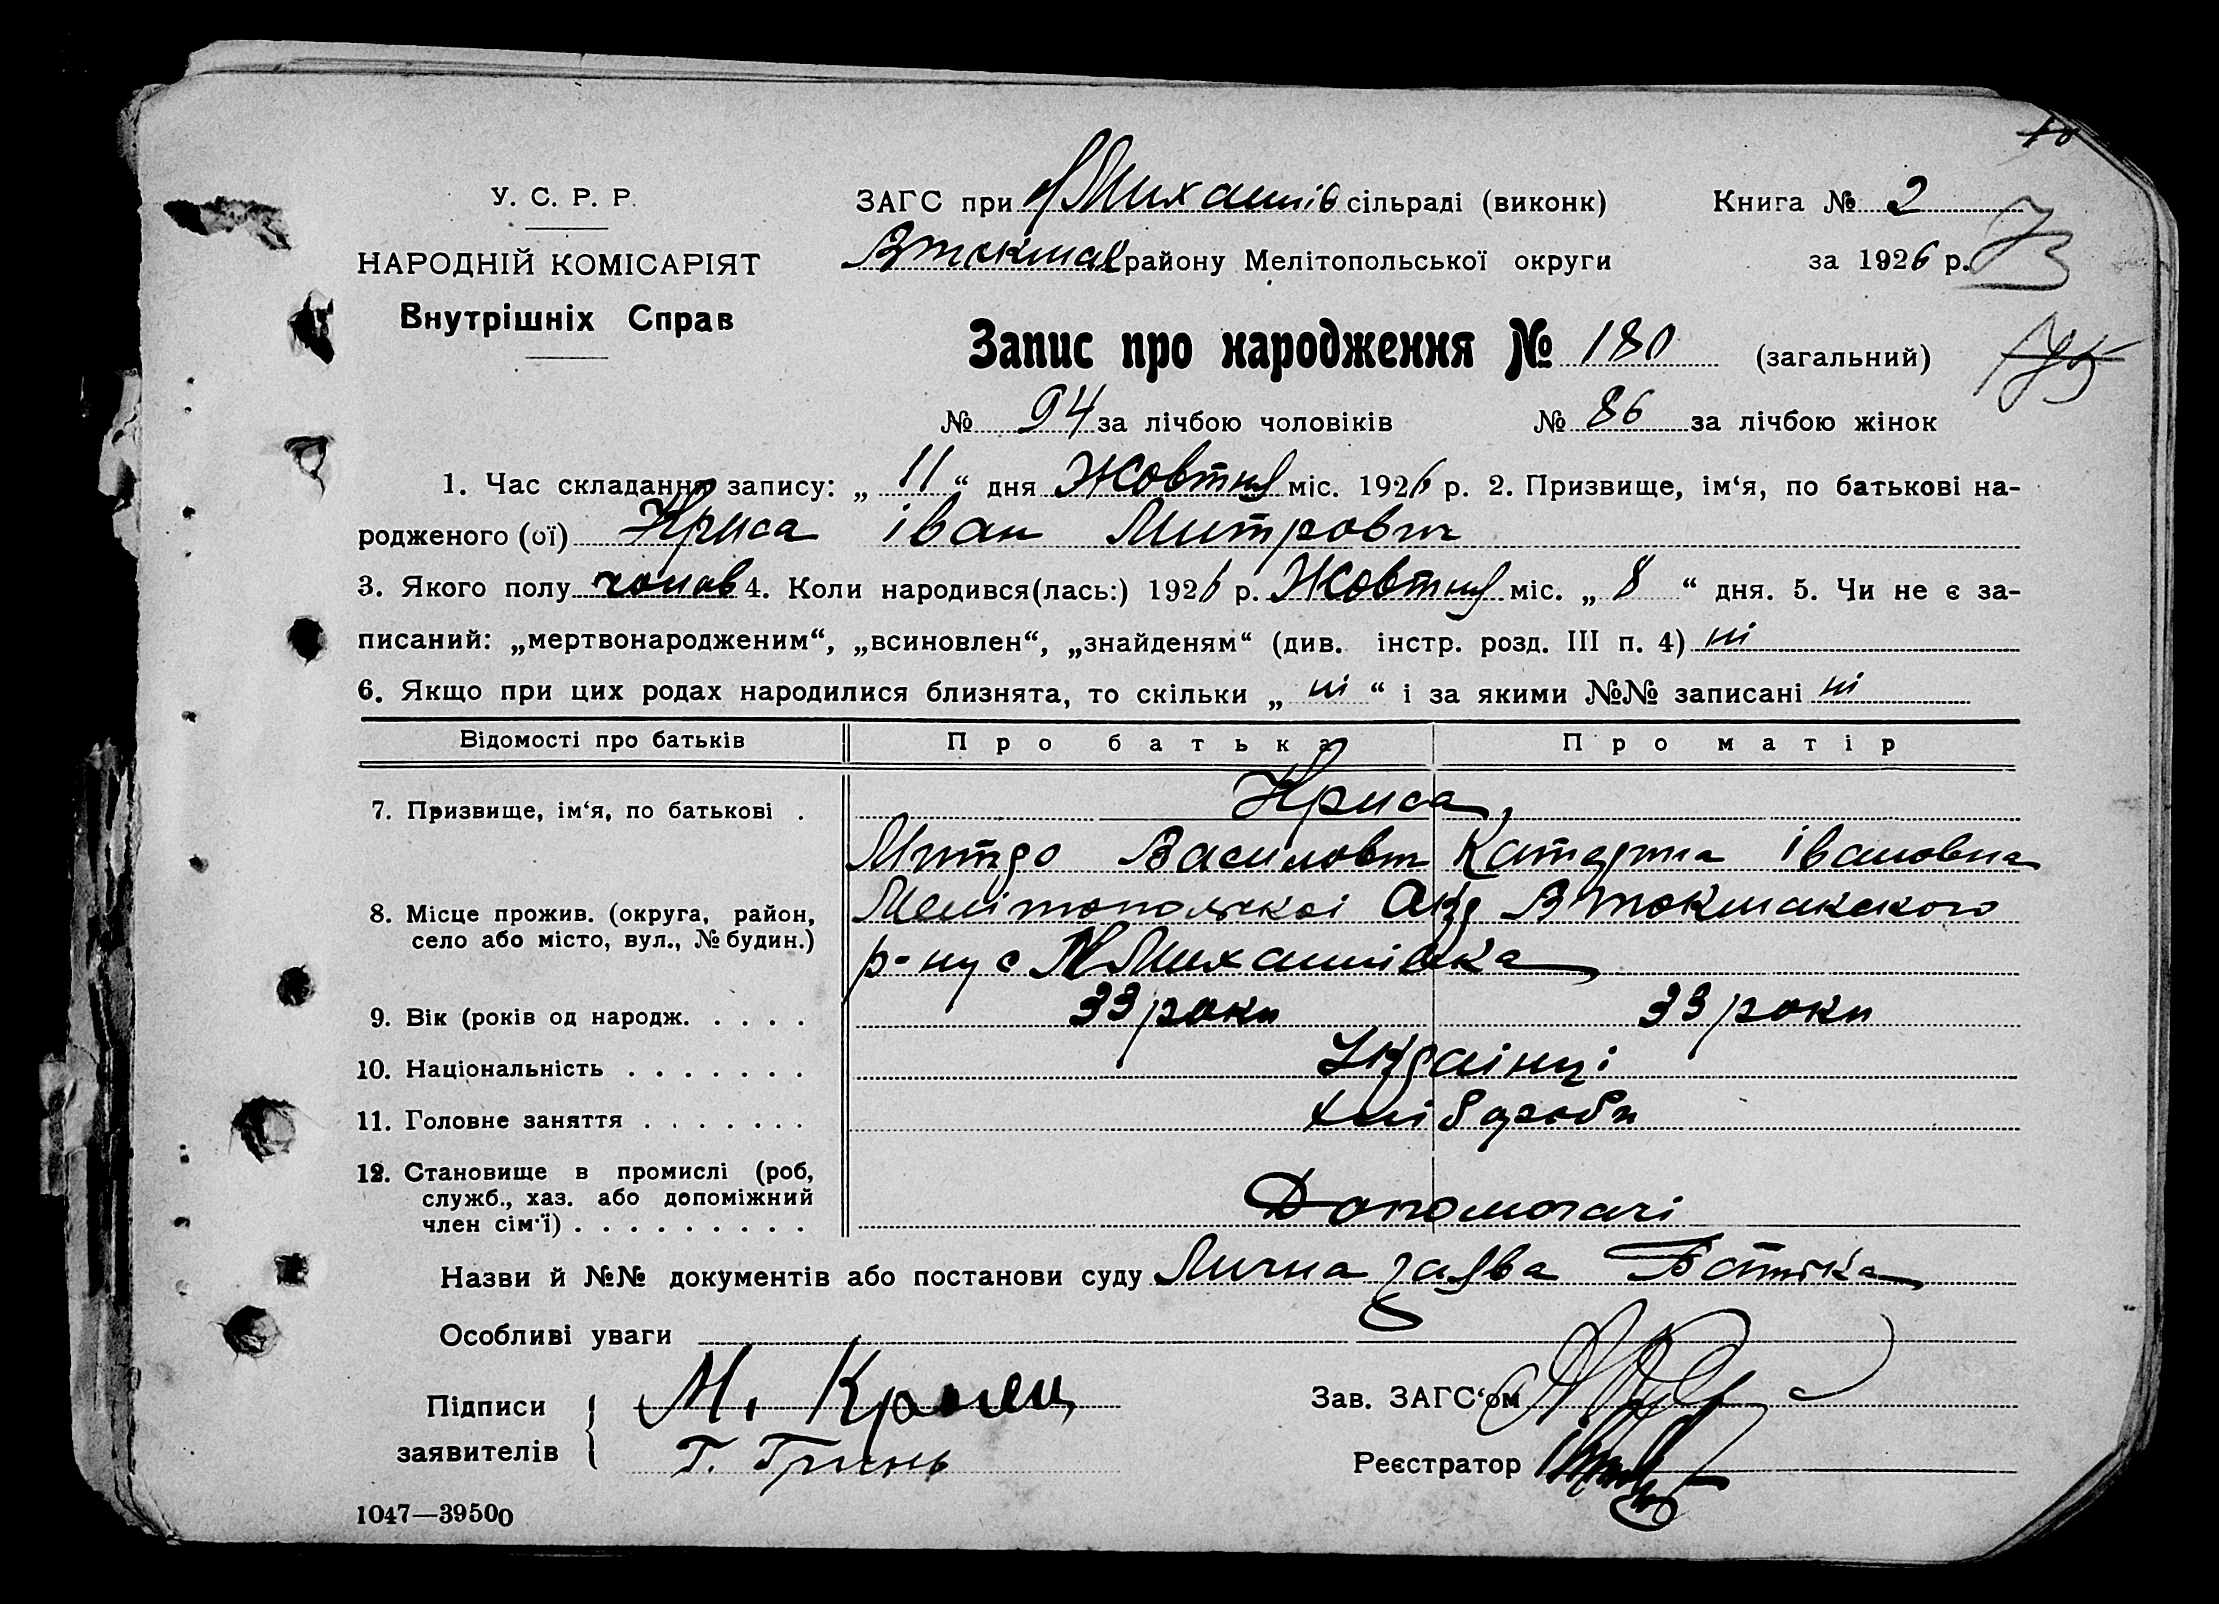 У. С. Р. Р.
НАРОДНІЙ КОМІСАРІЯТ
Внутрішніх Справ
ЗАГС при Михайлів сільраді (виконк)
Втокмак району Мелітопольської округи
Книга № 2
за 1926 р.
73
Запис про народження № 180 (загальний)
№ 94 за лічбою чоловіків № 86 за лічбою жінок
1. Час складання запису: „ 11 “ дня Жовтня міс. 1926 р. 2. Призвище, ім‘я, по батькові на-
родженого (ої) Криса Іван Митрович
3. Якого полу чолов 4. Коли народився(лась:) 1926 р. Жовтня міс. „ 8 “ дня. 5. Чи не є за-
писаний: „мертвонародженим“, „всиновлен“, „знайденям“ (див. інстр. розд. III п. 4) ні
6. Якщо при цих родах народилися близнята, то скільки „ ні “ і за якими №№ записані ні
Відомості про батьків Про батька Про матір
7. Призвище, ім‘я, по батькові . Криса,
Митро Василович Катерина Івановна
8. Місце прожив. (округа, район, село або місто, вул., № будин.) Мелітопольскоі Окр Втокмакского
р-ну с Михайлівка
9. Вік (років од народж. . . . . 33 роки 33 роки
10. Національність . . . . . . . Украінці
11. Головне заняття . . . . . . . хлібороби
12. Становище в промислі (роб,
служб., хаз. або допоміжний
член сім‘ї) . . . . . . . . . Допомогачі
Назви й №№ документів або постанови суду Лична заява Батька
Особливі уваги
Підписи
заявителів
М. Кролец
Г. Гринь
Зав. ЗАГС‘ом
Реєстратор
1047—39500